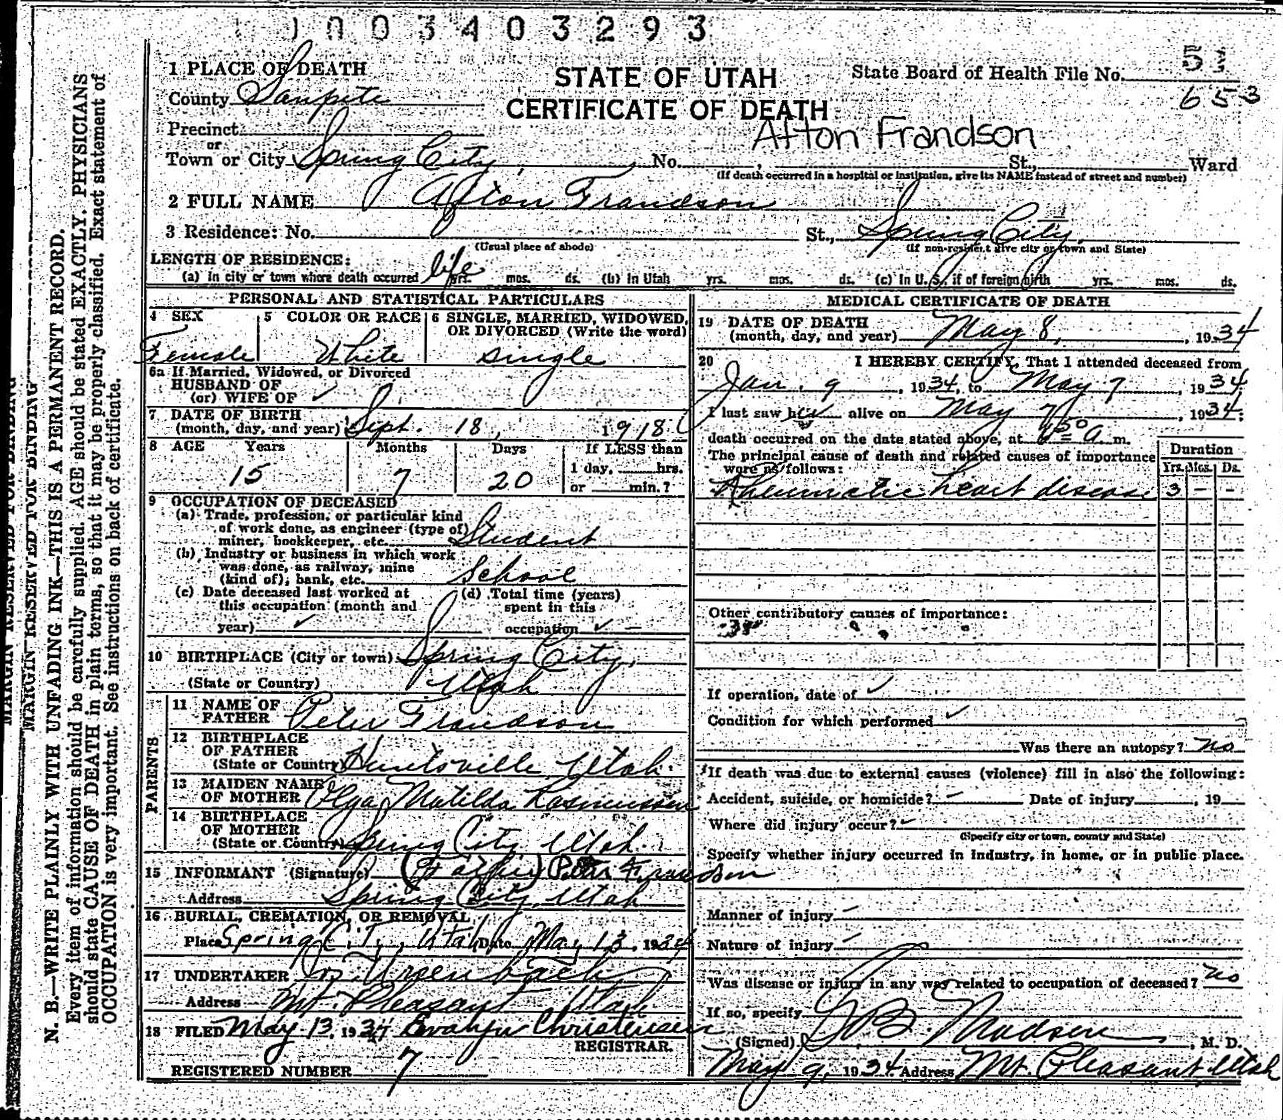 0003403293
1 PLACE OF DEATH
STATE OF UTAH
CERTIFICATE OF DEATH
State Board of Health File No. 51
653
County Sanpete
Precinct
or
Town or City Spring City, No. , St., Ward
Afton Frandson
(If death occurred in a hospital or institution, give its NAME instead of street and number)
2 FULL NAME Afton Frandson
3 Residence: No. St., Spring City,
(Usual place of abode) (If non-resident give city or town and State)
LENGTH OF RESIDENCE:
(a) In city or town where death occurred life yrs. mos. ds. (b) In Utah yrs. mos. ds. (c) In U. S. if of foreign birth yrs. mos. ds.
PERSONAL AND STATISTICAL PARTICULARS
4 SEX 5 COLOR OR RACE 6 SINGLE, MARRIED, WIDOWED, OR DIVORCED (Write the word)
Female White single
6a If Married, Widowed, or Divorced
HUSBAND OF
(or) WIFE OF ✓
7 DATE OF BIRTH
(month, day, and year) Sept. 18, 1918
8 AGE Years Months Days If LESS than
1 day, hrs.
or min.?
15 7 20
9 OCCUPATION OF DECEASED
(a) Trade, profession, or particular kind
of work done, as engineer (type of)
miner, bookkeeper, etc. Student
(b) Industry or business in which work
was done, as railway, mine
(kind of), bank, etc. School
(c) Date deceased last worked at
this occupation (month and
year) ✓
(d) Total time (years)
spent in this
occupation ✓ —
10 BIRTHPLACE (City or town) Spring City,
(State or Country) Utah
PARENTS
11 NAME OF
FATHER Peter Frandson
12 BIRTHPLACE
OF FATHER
(State or Country) Huntsville Utah.
13 MAIDEN NAME
OF MOTHER Olga Matilda Rasmussen
14 BIRTHPLACE
OF MOTHER
(State or Country) Spring City Utah.
15 INFORMANT (Signature) (Father) Peter Frandson
Address Spring City, Utah
16 BURIAL, CREMATION, OR REMOVAL
Place Spring City, Utah Date May 13, 1934
17 UNDERTAKER Ursenbach
Address Mt. Pleasant Utah.
18 FILED May 13, 1934 Evalyn Christensen
REGISTRAR.
REGISTERED NUMBER 7
MEDICAL CERTIFICATE OF DEATH
19 DATE OF DEATH
(month, day, and year) May 8, , 1934
20 I HEREBY CERTIFY, That I attended deceased from
Jan. 9 , 1934, to May 7 , 1934
I last saw her alive on May 7 , 1934;
death occurred on the date stated above, at a. m.
The principal cause of death and related causes of importance
were as follows:
Duration
Yrs. Mos. Ds.
Rheumatic heart disease 3 – –
Other contributory causes of importance:
If operation, date of ✓
Condition for which performed ✓
Was there an autopsy? no
If death was due to external causes (violence) fill in also the following:
Accident, suicide, or homicide? – Date of injury , 19
Where did injury occur? ✓
(Specify city or town, county and State)
Specify whether injury occurred in industry, in home, or in public place.
Manner of injury –
Nature of injury –
Was disease or injury in any way related to occupation of deceased? no
If so, specify
(Signed) Madsen , M. D.
May 9, 1934 Address Mt. Pleasant, Utah
MARGIN RESERVED FOR BINDING
MARGIN RESERVED FOR BINDING
N. B.—WRITE PLAINLY WITH UNFADING INK—THIS IS A PERMANENT RECORD.
Every item of information should be carefully supplied. AGE should be stated EXACTLY. PHYSICIANS
should state CAUSE OF DEATH in plain terms, so that it may be properly classified. Exact statement of
OCCUPATION is very important. See instructions on back of certificate.